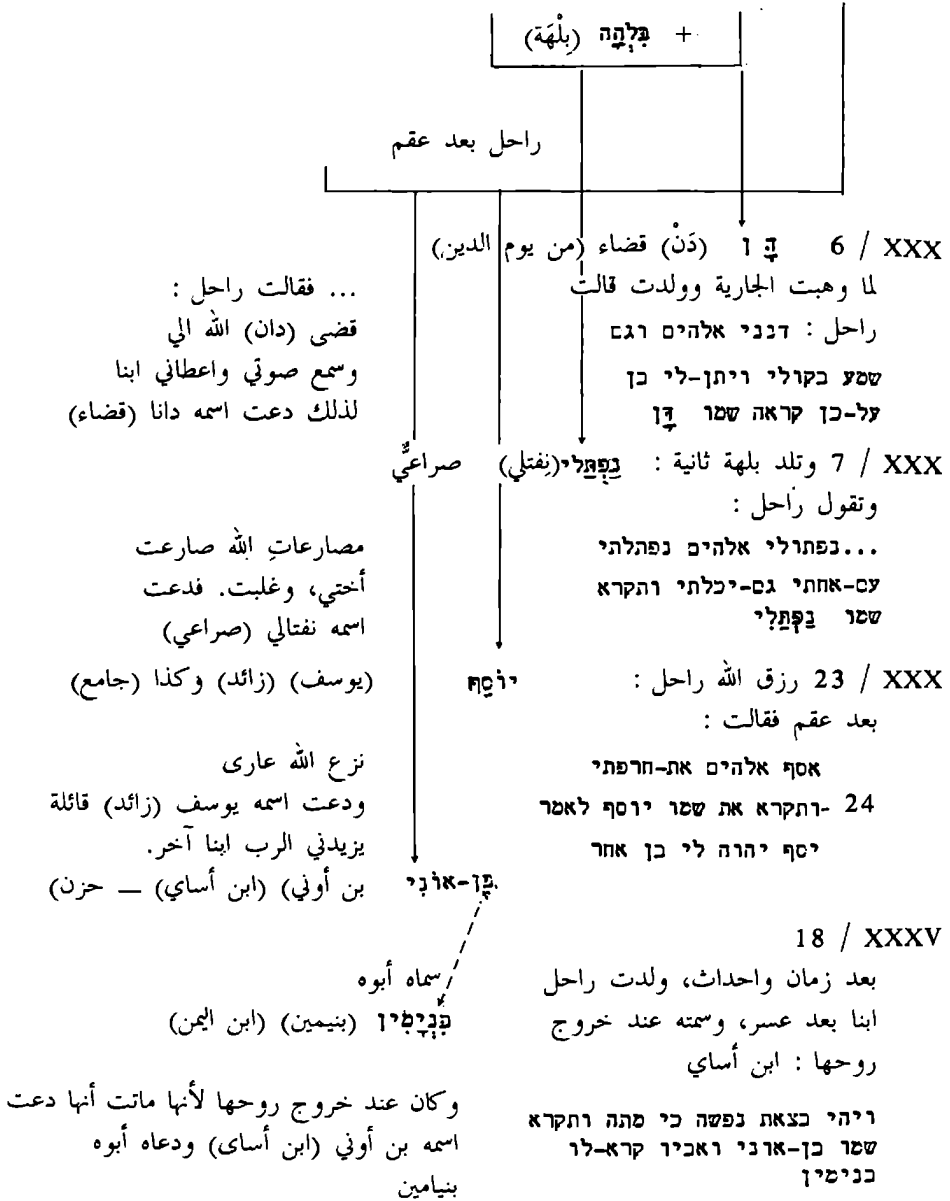 + בִּלְהָה (بِلْهَة)
راحل بعد عقم
XXX / 6 דָּן (دَنْ) قضاء (من يوم الدين)
لما وهبت الجارية وولدت قالت
راحل : דנני אלהים וגם
שמע בקולי ויתן-לי בן
על-כן קראה שמו דָּן
... فقالت راحل :
قضى (دان) الله الي
وسمع صوتي واعطاني ابنا
لذلك دعت اسمه دانا (قضاء)
XXX / 7 وتلد بلهة ثانية : נַפְתָּלִי (نِفتلي) صراعيٌّ
وتقول راحل :
...נפתולי אלהים נפתלתי
עם-אחתי גם-יכלתי ותקרא
שמו נַפְתָּלִי
مصارعاتِ الله صارعت
أختي، وغلبت. فدعت
اسمه نفتالي (صراعي)
XXX / 23 رزق الله راحل : יוֹסֵף (يوسف) (زائد) وكذا (جامع)
بعد عقم فقالت :
אסף אלהים את-חרפתי
24 -ותקרא את שמו יוסף לאמר
יסף יהוה לי בן אחר
نزع الله عارى
ودعت اسمه يوسف (زائد) قائلة
يزيدني الرب ابنا آخر.
בֶּן-אוֹנִי بن أوني) (ابن أساي) — حزن)
XXXV / 18
بعد زمان واحداث، ولدت راحل
ابنا بعد عسر، وسمته عند خروج
روحها : ابن أساي
سماه أبوه
בִּנְיָמִין (بنيمين) (ابن اليمن)
ויהי בצאת נפשה כי מתה ותקרא
שמו בן-אוני ואביו קרא-לו
בנימין
وكان عند خروج روحها لأنها ماتت أنها دعت
اسمه بن أوني (ابن أساى) ودعاه أبوه
بنيامين